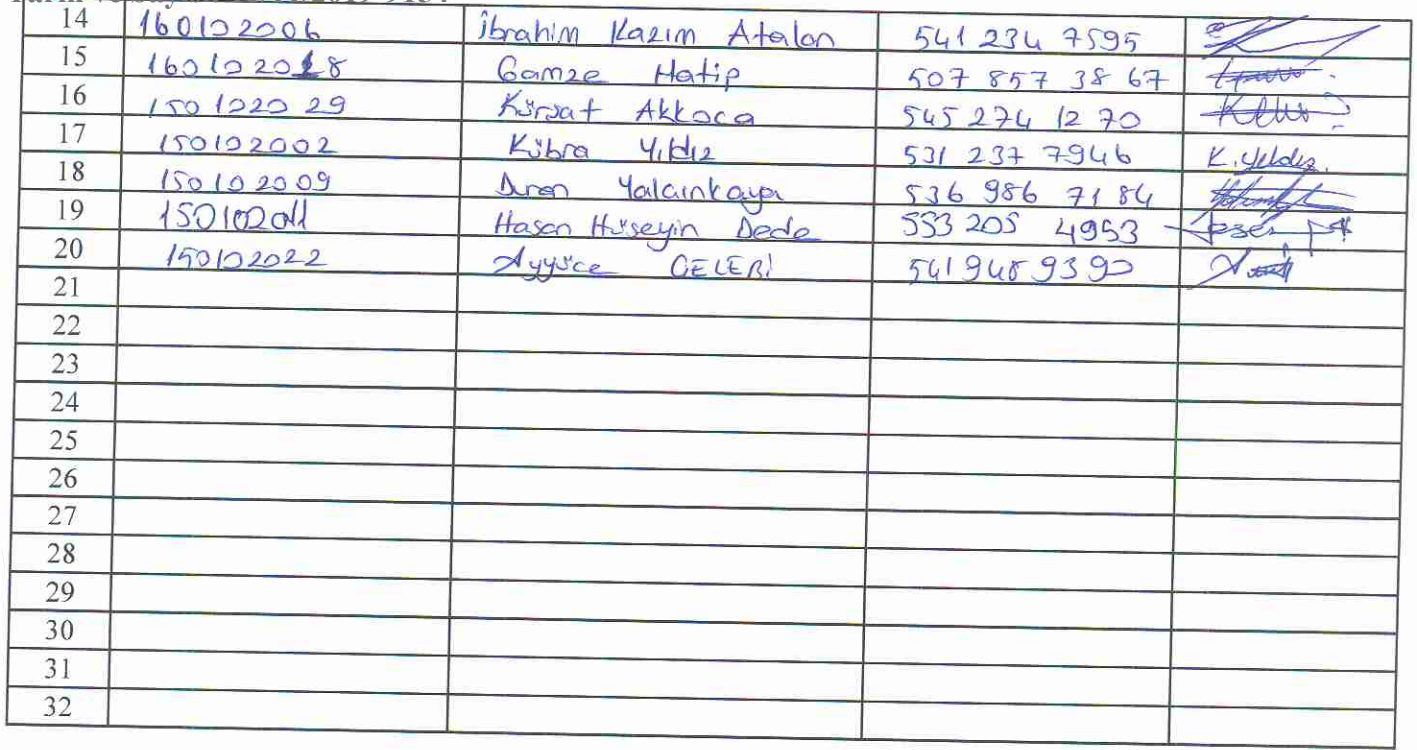 14 160102006 İbrahim Kazım Atalan 541 234 7595
15 160102018 Gamze Hatip 507 857 38 67
16 150102029 Kürşat Akkoca 545 274 12 70
17 150102002 Kübra Yıldız 531 237 7946 K. Yıldız.
18 150102009 Yalçınkaya 536 986 71 84
19 150102011 Hasan Hüseyin Dede 553 205 4953
20 150102022 Ayyüce ÇELEBİ 541 948 9390
21
22
23
24
25
26
27
28
29
30
31
32